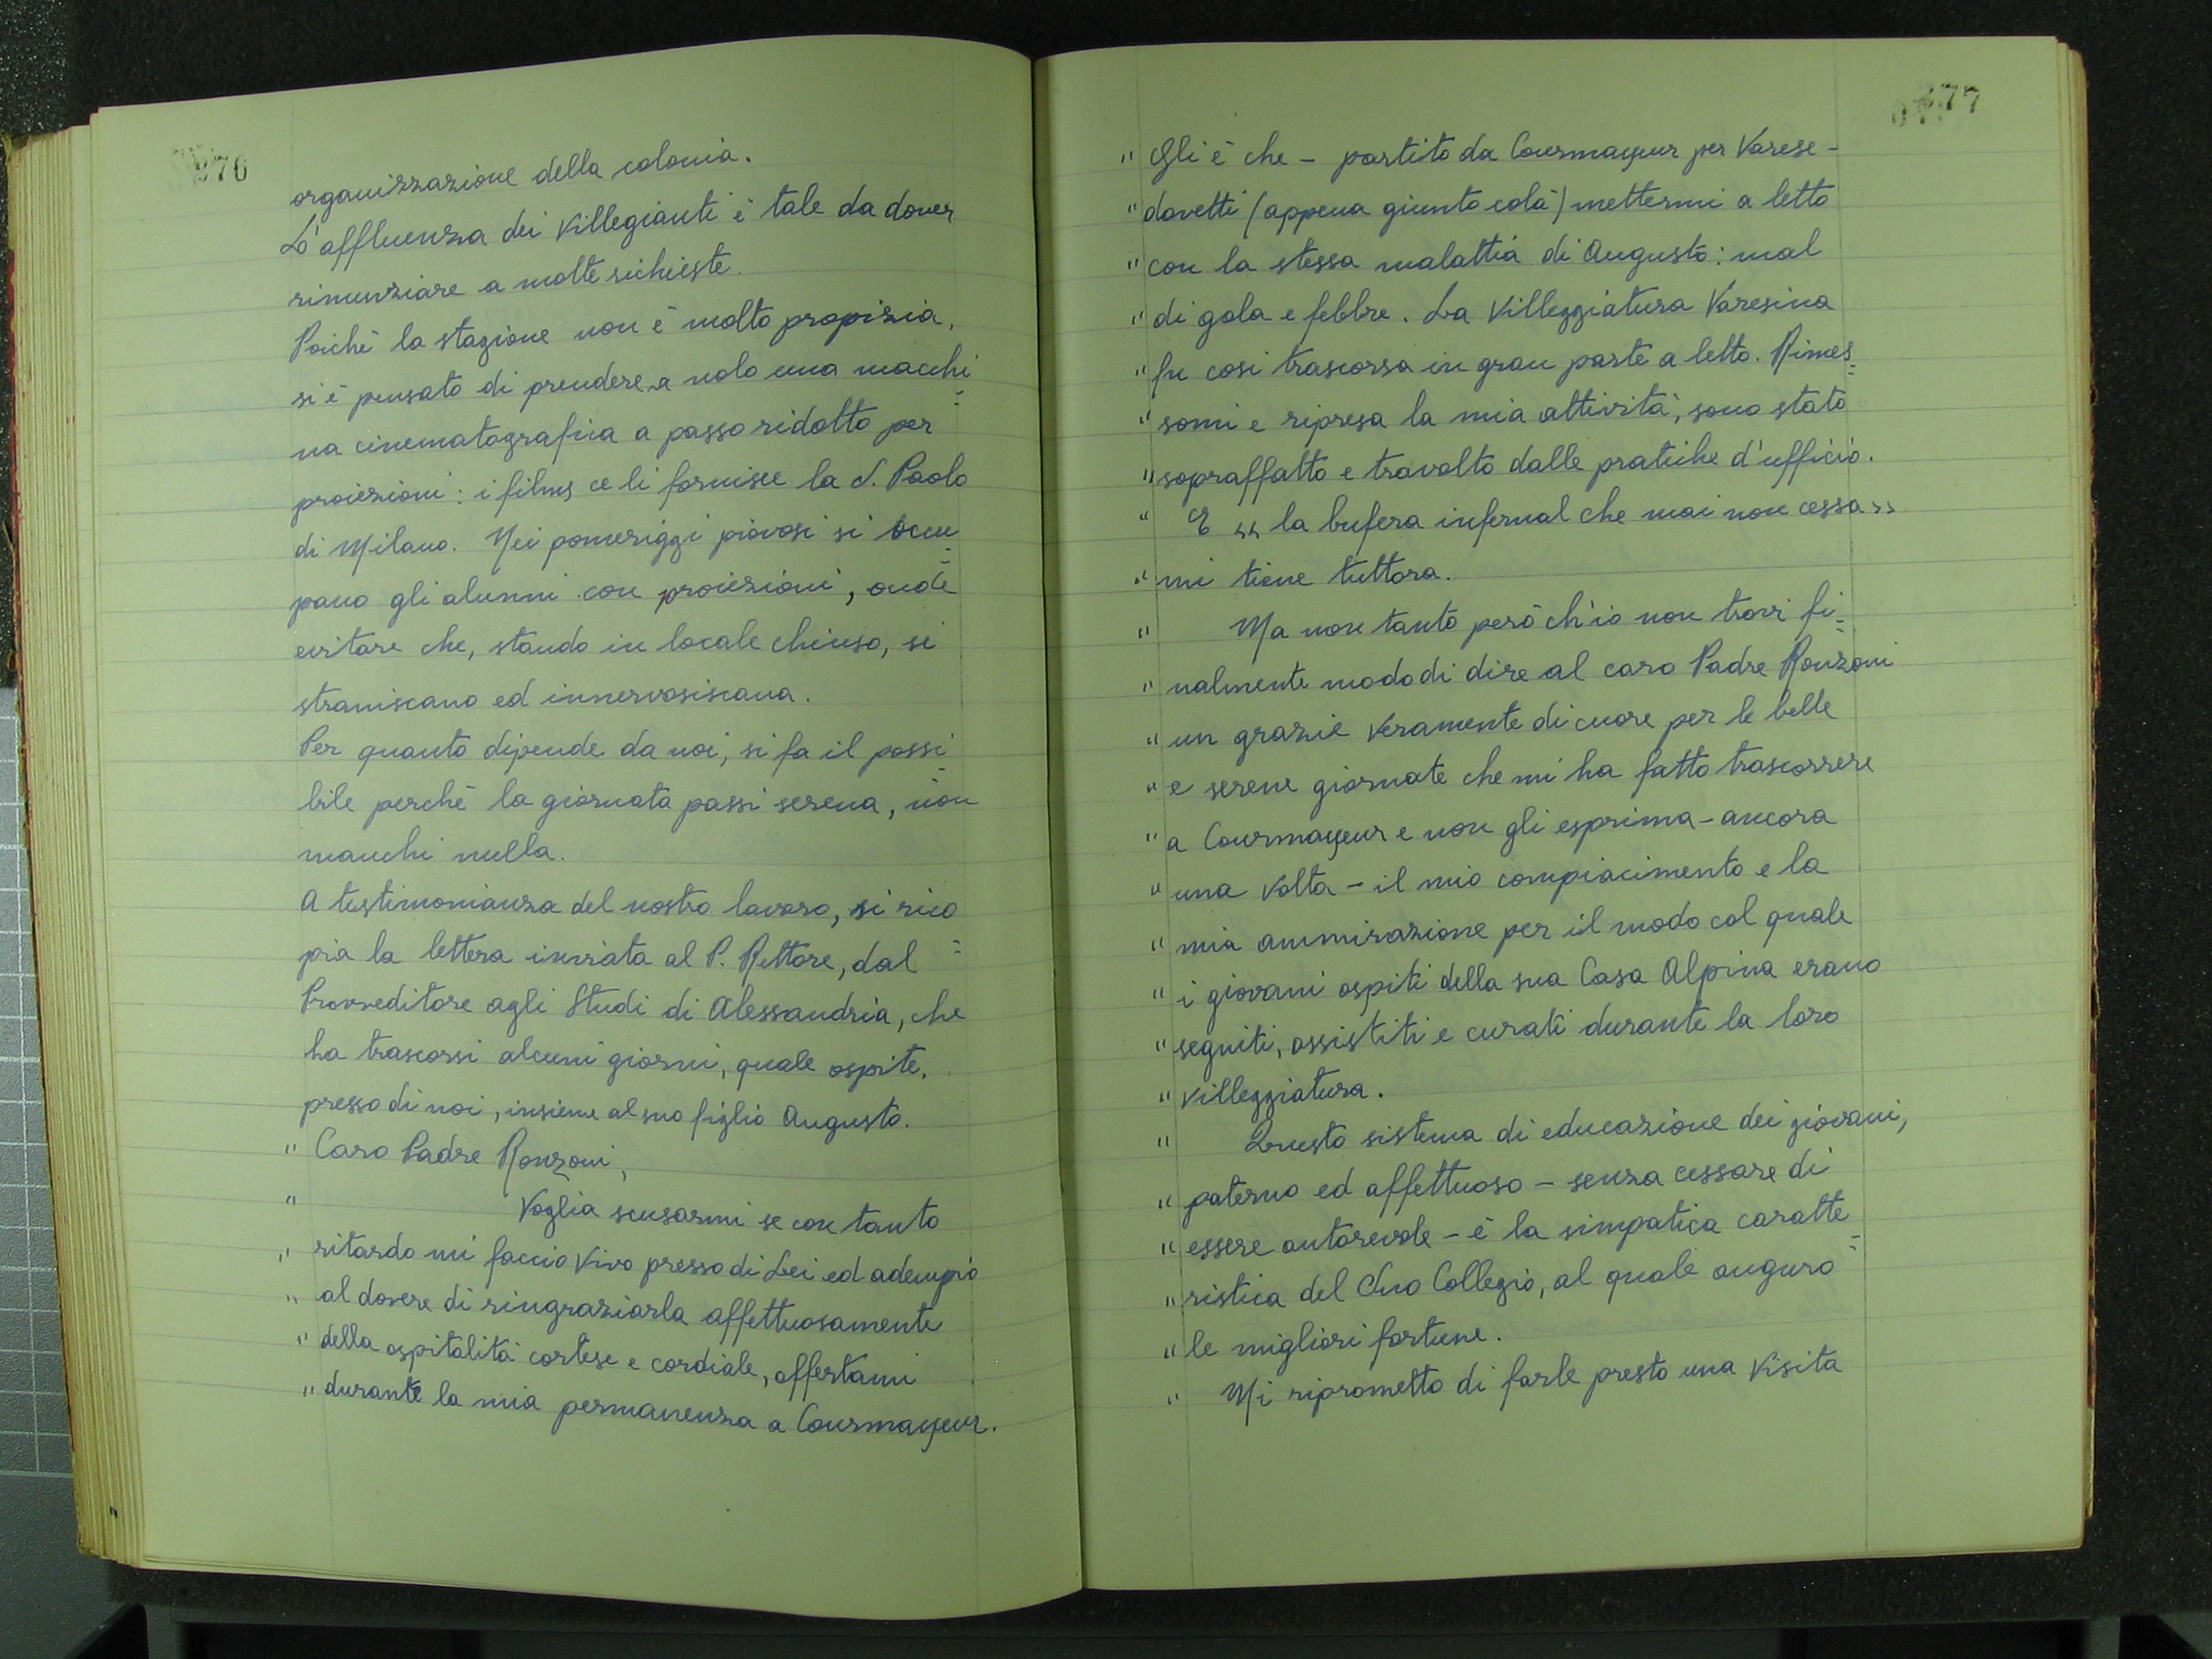 276
organizzazione della colonia.
L'affluenza dei villegianti è tale da dover
rinunziare a molte richieste.
Poichè la stagione non è molto propizia,
si è pensato di prendere a nolo una macchi=
na cinematografica a passo ridotto per
proiezioni: i films ce li fornisce la S. Paolo
di Milano. Nei pomeriggi piovosi si occu=
pano gli alunni con proiezioni, onde
evitare che, stando in locale chiuso, si
straniscano ed innervosiscana.
Per quanto dipende da noi, si fa il possi=
bile perchè la giornata passi serena, non
manchi nulla.
A testimonianza del nostro lavoro, si rico=
pia la lettera inviata al P. Rettore, dal
Provveditore agli Studi di Alessandria, che
ha trascorsi alcuni giorni, quale ospite,
presso di noi, insieme al suo figlio Augusto.
" Caro Padre Ronzoni,
" Voglia scusarmi se con tanto
" ritardo mi faccio vivo presso di Lei ed adempio
" al dovere di ringraziarla affettuosamente
" della ospitalità cortese e cordiale, offertami
" durante la mia permanenza a Courmayeur.
277
" Gli è che - partito da Courmayeur per Varese -
" dovetti (appena giunto colà) mettermi a letto
" con la stessa malattia di Augusto: mal
" di gola e febbre. La Villeggiatura Varesina
" fu così trascorsa in gran parte a letto. Rimes=
" somi e ripresa la mia attività, sono stato
" sopraffatto e travolto dalle pratiche d'ufficio.
" E “ la bufera infernal che mai non cessa ”
" mi tiene tuttora.
" Ma non tanto però ch'io non trovi fi=
" nalmente modo di dire al caro Padre Ronzoni
" un grazie veramente di cuore per le belle
" e serene giornate che mi ha fatto trascorrere
" a Courmayeur e non gli esprima - ancora
" una volta - il mio compiacimento e la
" mia ammirazione per il modo col quale
" i giovani ospiti della sua Casa Alpina erano
" seguiti, assistiti e curati durante la loro
" villeggiatura.
" Questo sistema di educazione dei giovani,
" paterno ed affettuoso - senza cessare di
" essere autorevole - è la simpatica caratte=
" ristica del Suo Collegio, al quale auguro
" le migliori fortune.
" Mi riprometto di farle presto una visita